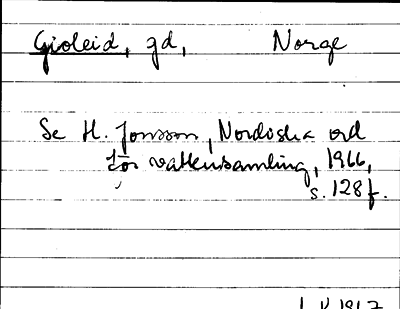 Gioleid, gd, Norge
Se H. Jonsson, Nordiska ord
för vattensamling, 1966,
s. 128 f.